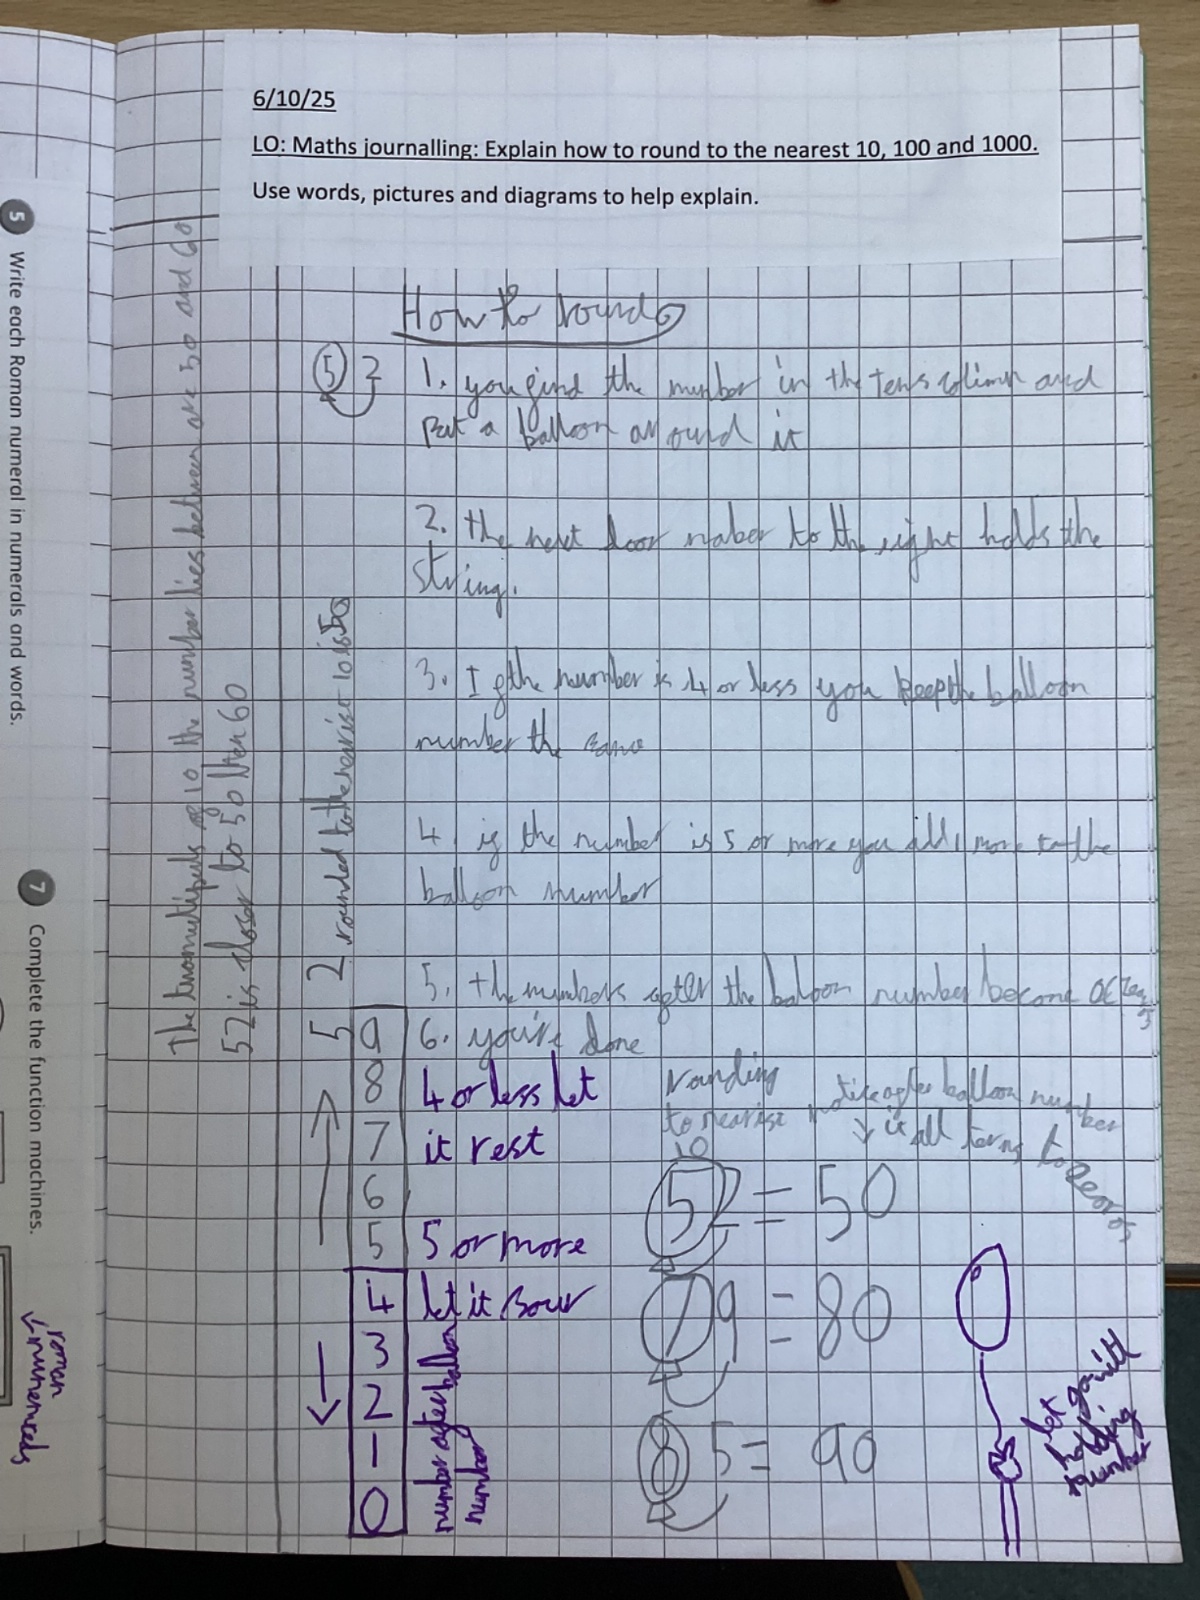 6/10/25
LO: Maths journalling: Explain how to round to the nearest 10, 100 and 1000.
Use words, pictures and diagrams to help explain.
How to round
5 2
1. you find the number in the tens colimn and
put a balloon around it
2. the next door nuber to the right holds the
string.
3. If the number is 4 or less you keep the balloon
number the same
4. if the number is 5 or more you add 1 more to the
balloon number
5. the numbers after the balloon number become
6. you're done
4 or less let
it rest
5 or more
let it
number after balloon
number
9
8
7
6
5
4
3
2
1
0
rounding
to nearist
10
notice after balloon number
it all terns to zeros
52 = 50
79 = 80
85 = 90
holding
number
The two multipuls of 10 the number lies between are 50 and 60
52 is closer to 50 then 60
52 rounded to the nearist 10 is 50
5 Write each Roman numeral in numerals and words.
7 Complete the function machines.
roman